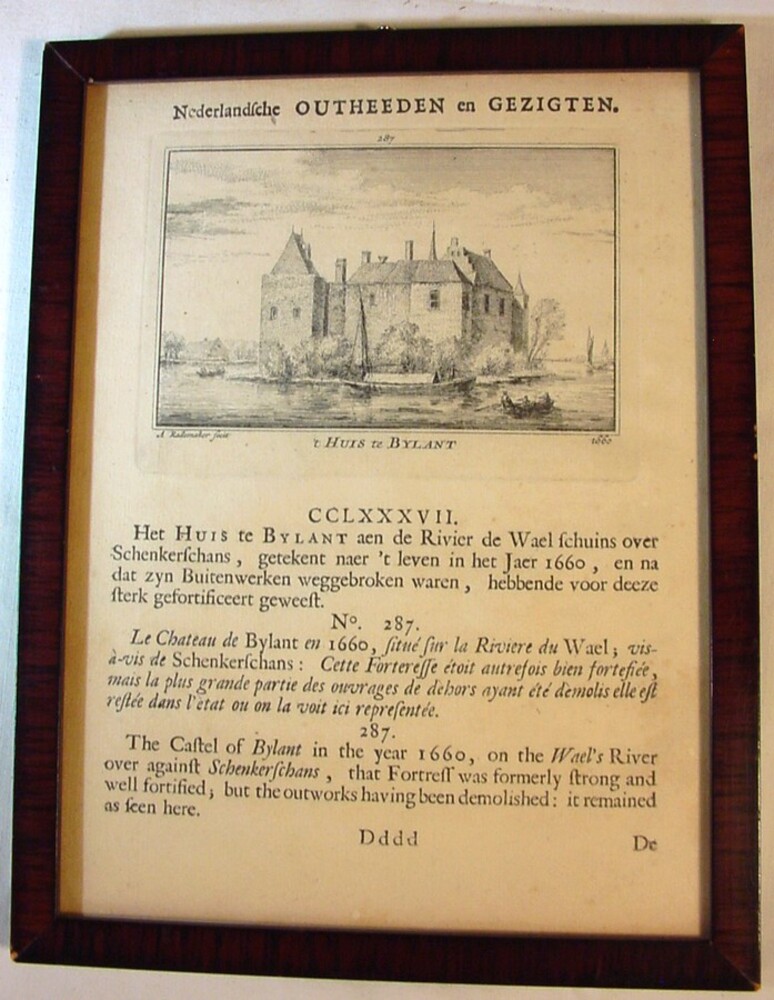 Nederlandſche OUTHEEDEN en GEZIGTEN.
287
A Rademaker fecit
't HUIS te BYLANT
1660
CCLXXXVII.
Het HUIS te BYLANT aen de Rivier de Wael ſchuins over
Schenkerſchans, getekent naer 't leven in het Jaer 1660, en na
dat zyn Buitenwerken weggebroken waren, hebbende voor deeze
ſterk gefortificeert geweeſt.
Nº. 287.
Le Chateau de Bylant en 1660, ſitué ſur la Riviere du Wael; vis-
à-vis de Schenkerſchans: Cette Fortereſſe étoit autrefois bien fortefiée,
mais la plus grande partie des ouvrages de dehors ayant été demolis elle eſt
reſtée dans l'état ou on la voit ici repreſentée.
287.
The Caſtel of Bylant in the year 1660, on the Wael's River
over againſt Schenkerſchans, that Fortreſſ was formerly ſtrong and
well fortified; but the outworks having been demolished: it remained
as ſeen here.
Dddd
De